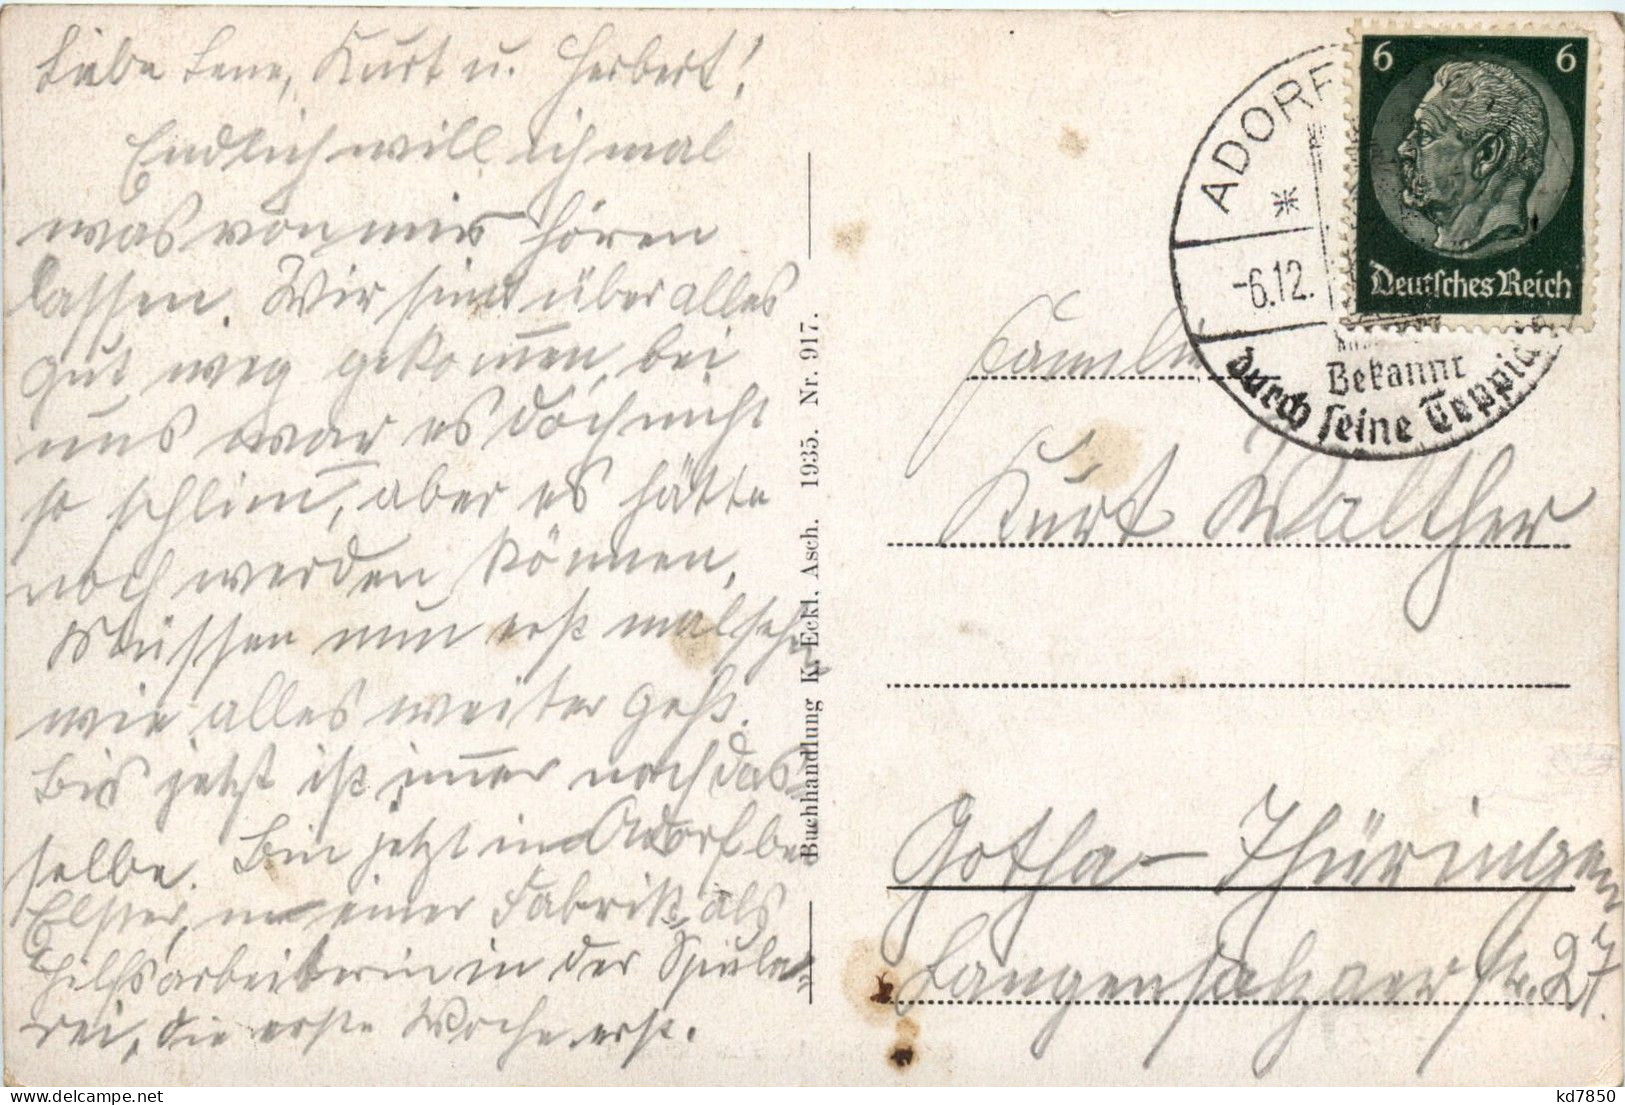 Liebe Lene, Kurt u. Herbert!
Endlich will ich mal
was von mir hören
lassen. Wir sind über alles
gut weg gekom̅en, bei
uns war es doch nicht
so schlim̅, aber es hätte
noch werden können,
Müssen nun erst mal sehn
wie alles weiter geht.
Bis jetzt ist im̅er noch das-
selbe. Bin jetzt in Adorf bei
Elster, in einer Fabrik als
Hilfsarbeiterin in der Spule-
rei, die erste Woche erst.
Buchhandlung K. Eckl, Asch. 1935. Nr. 917.
ADORF
-6.12.
Bekannt
durch seine Teppiche
6 6
Deutsches Reich
Familie
Kurt Walther
Gotha-Thüringen
Langensalzaer str. 27.
delcampe.net
kd7850